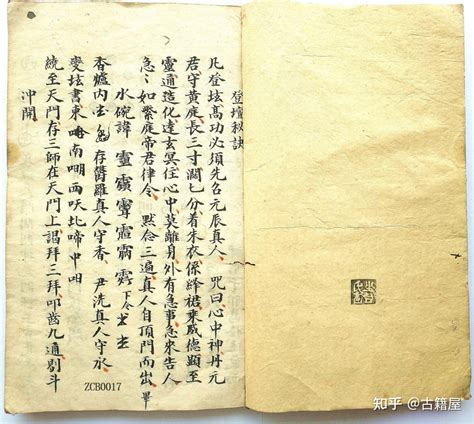 登壇秘訣
凡登壇高功必須先召元辰真人 咒曰心中神丹元
君守黄庭長三寸濶七分着朱衣保絳裙乗威德顕至
靈通造化達玄冥住心中莫離身外有急事急來告人
急〻如紫庭帝君律令 黙念三遍真人自頂門而出畢
水碗諱 下令
香爐内 存欝羅真人守香 尹洗真人守水
変坛書東 南 西 北啼中呬
繞至天門存三師在天門上謁拜三拜叩齒九通剔斗
冲開
ZCB0017
知乎 @古籍屋